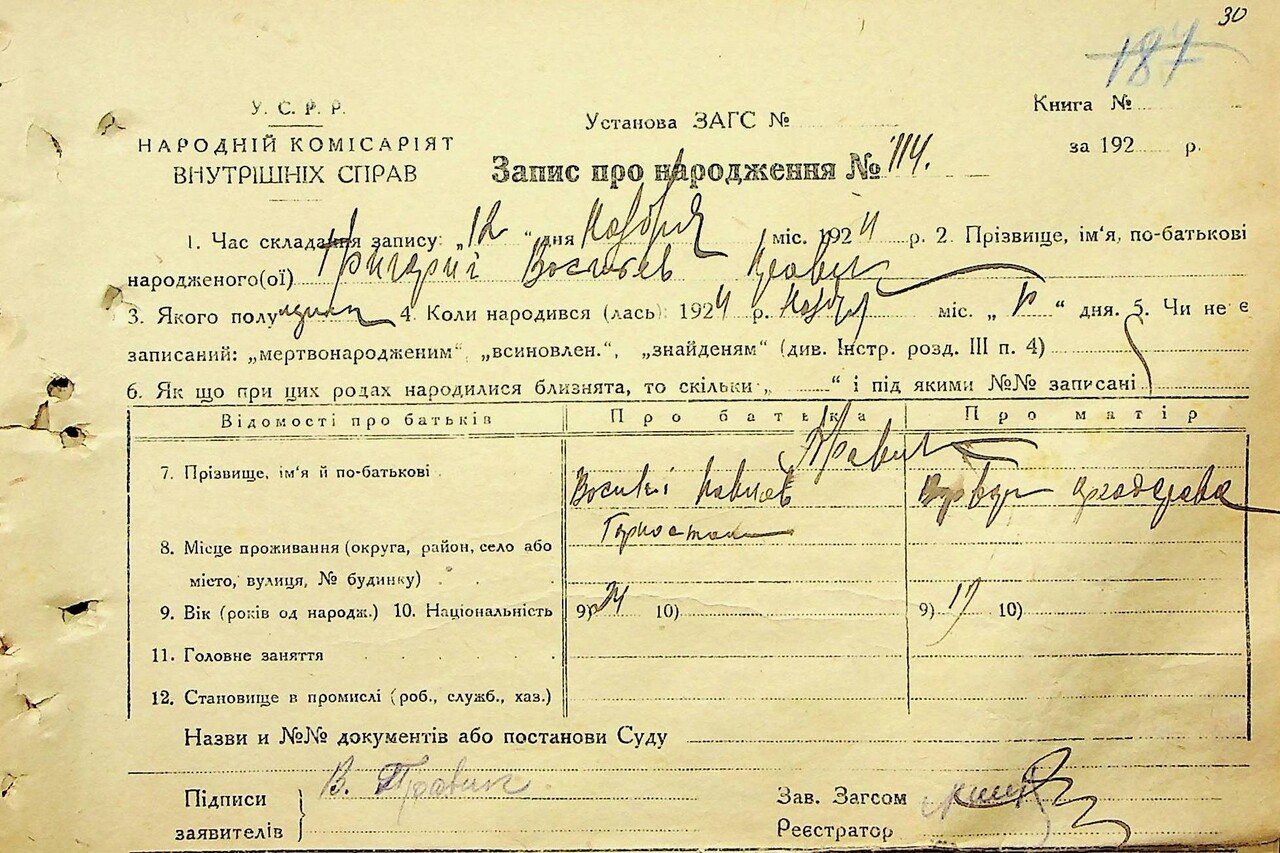 30
187
У. С. Р. Р.
НАРОДНІЙ КОМІСАРІЯТ
ВНУТРІШНІХ СПРАВ
Установа ЗАГС №
Книга №
за 192 р.
Запис про народження № 114.
1. Час складання запису: „12“ дня Ноября міс. 1924 р. 2. Прізвище, ім'я, по-батькові
народженого(ої) Григорий
3. Якого полу 4. Коли народився (лась): 1924 р. Ноября міс. „ “ дня. 5. Чи не є
записаний: „мертвонародженим“, „всиновлен.“, „знайденям“ (див. Інстр. розд. III п. 4)
6. Як що при цих родах народилися близнята, то скільки „ “ і під якими №№ записані
Відомості про батьків Про батька Про матір
7. Прізвище, ім'я й по-батькові
Правик
8. Місце проживання (округа, район, село або
місто, вулиця, № будинку)
9. Вік (років од народж.) 10. Національність 9) 24 10) 9) 19 10)
11. Головне заняття
12. Становище в промислі (роб., служб., хаз.)
Назви и №№ документів або постанови Суду
Підписи
заявителів
В. Правик
Зав. Загсом
Реєстратор